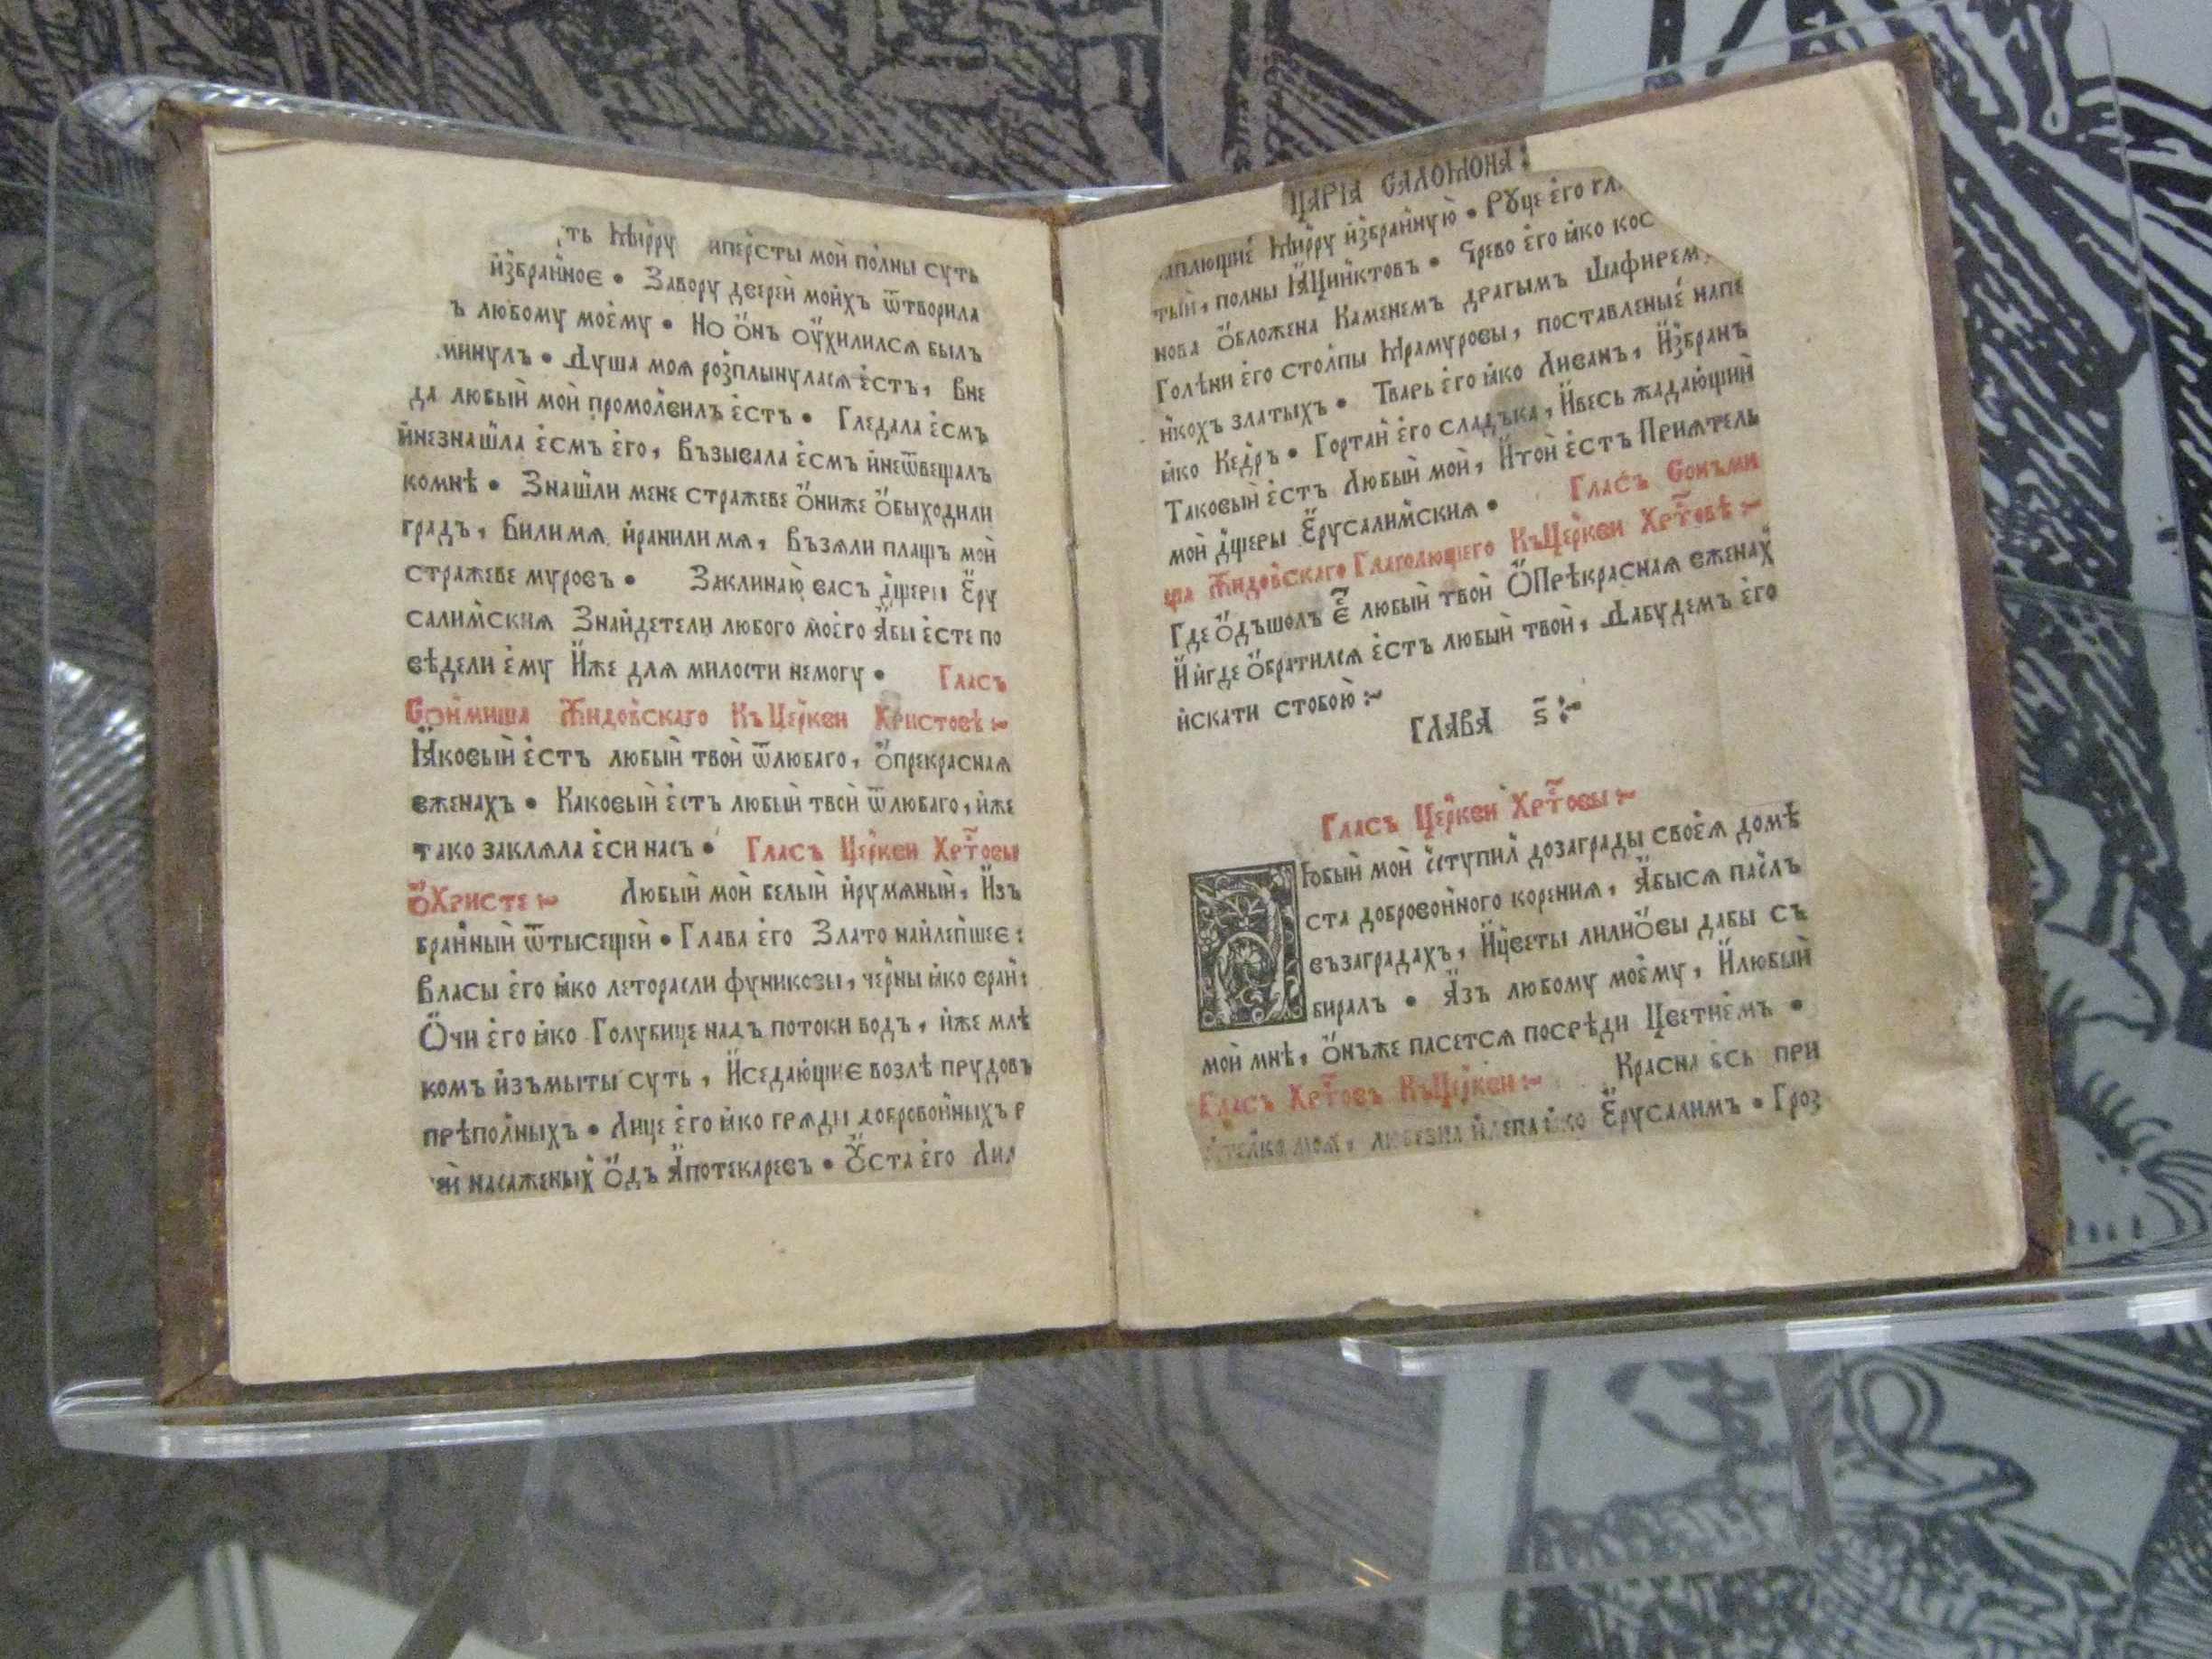 ть Мирру иперсты мои полны суть
и҆збранное • Завору двереи моихъ ѿтворила
ъ любому моему • Но ѻнъ ѹхилился былъ
минулъ • Душа моя розплынулася єсть, вне
да любый мой промолвилъ єсть • Гледала єсмъ
инезнашла єсмъ єго, възывала єсмъ инеѿвещалъ
комнѣ • Знашли мене стражеве ѻниже ѻбыходили
градъ, Били мѧ иранили мѧ, Възѧли плащъ мой
стражеве муровъ • Заклинаю васъ дщери Єру
салимскиѧ Знайдетели любого моєго Абы єсте по
ведѣли єму Иже длѧ милости немогу • Гласъ
Сонмища Жидовскаго КъЦеркви Христовѣ :~
Ꙗковый єстъ любый твой ѿлюбаго, ѻпрекраснаѧ
вженахъ • Каковый єстъ любый твой ѿлюбаго, иже
тако заклѧла єси насъ • Гласъ Церкви Хрт҃овы
ѻХристе :~ Любый мой белый ирумѧный, Изъ
бранный ѿтысещей • Глава єго Злато найлепшеє :
Власы єго ꙗко леторасли фуниковы, черны ꙗко вран :
Ѻчи єго ꙗко Голубице надъ потоки водъ, иже млѣ
комъ изъмыты суть, Иседающиє возлѣ прудовъ
прѣполныхъ • Лице єго ꙗко грѧди добровонныхъ
ей насаженых ѻдъ Апотекаревъ • Ѹста єго Лил
ЦАРІА САЛОМОНА :
аплющиє Мирру избранную • Рꙋце єго гл
тый, полны Іꙗцинктовъ • Чрево єго ꙗко кос
нова ѻбложена Каменемъ драгымъ Шафирем
Голѣни єго столпы Мрамуровы, поставленыє напе
нкохъ златыхъ • Тварь єго ꙗко Ливанъ, Избранъ
ꙗко Кедръ • Гортань єго сладъка, Ивесь жадающий
Таковый єстъ Любый мой, Итой єстъ Приѧтель
мой дщеры Єрусалимскиѧ • Гласъ Сонъми
ща Жидовскаго Глаголющего КъЦеркви Хрт҃овѣ :~
Где ѻдъшолъ є҃ любый твой ѺПрѣкраснаѧ вженах
Иигде ѻбратилсѧ єстъ любый твой, Дабудемъ єго
искати стобою :~
ГЛАВА Ѕ҃ :~
Гласъ Церкви Хрт҃овы :~
Любый мой иступил дозаграды своєѧ домѣ
ста добровонного корениѧ, Абысѧ паслъ
възаградахъ, Ицветы лилиѻвы дабы съ
биралъ • Азъ любому моєму, Илюбый
мой мнѣ, ѻнъже пасетсѧ посрѣди Цветнемъ •
Гласъ Хрт҃овъ КъЦеркви :~ Красна єсь при
ѧтелко моѧ, любезна илепа ꙗко Єрусалимъ • Гроз